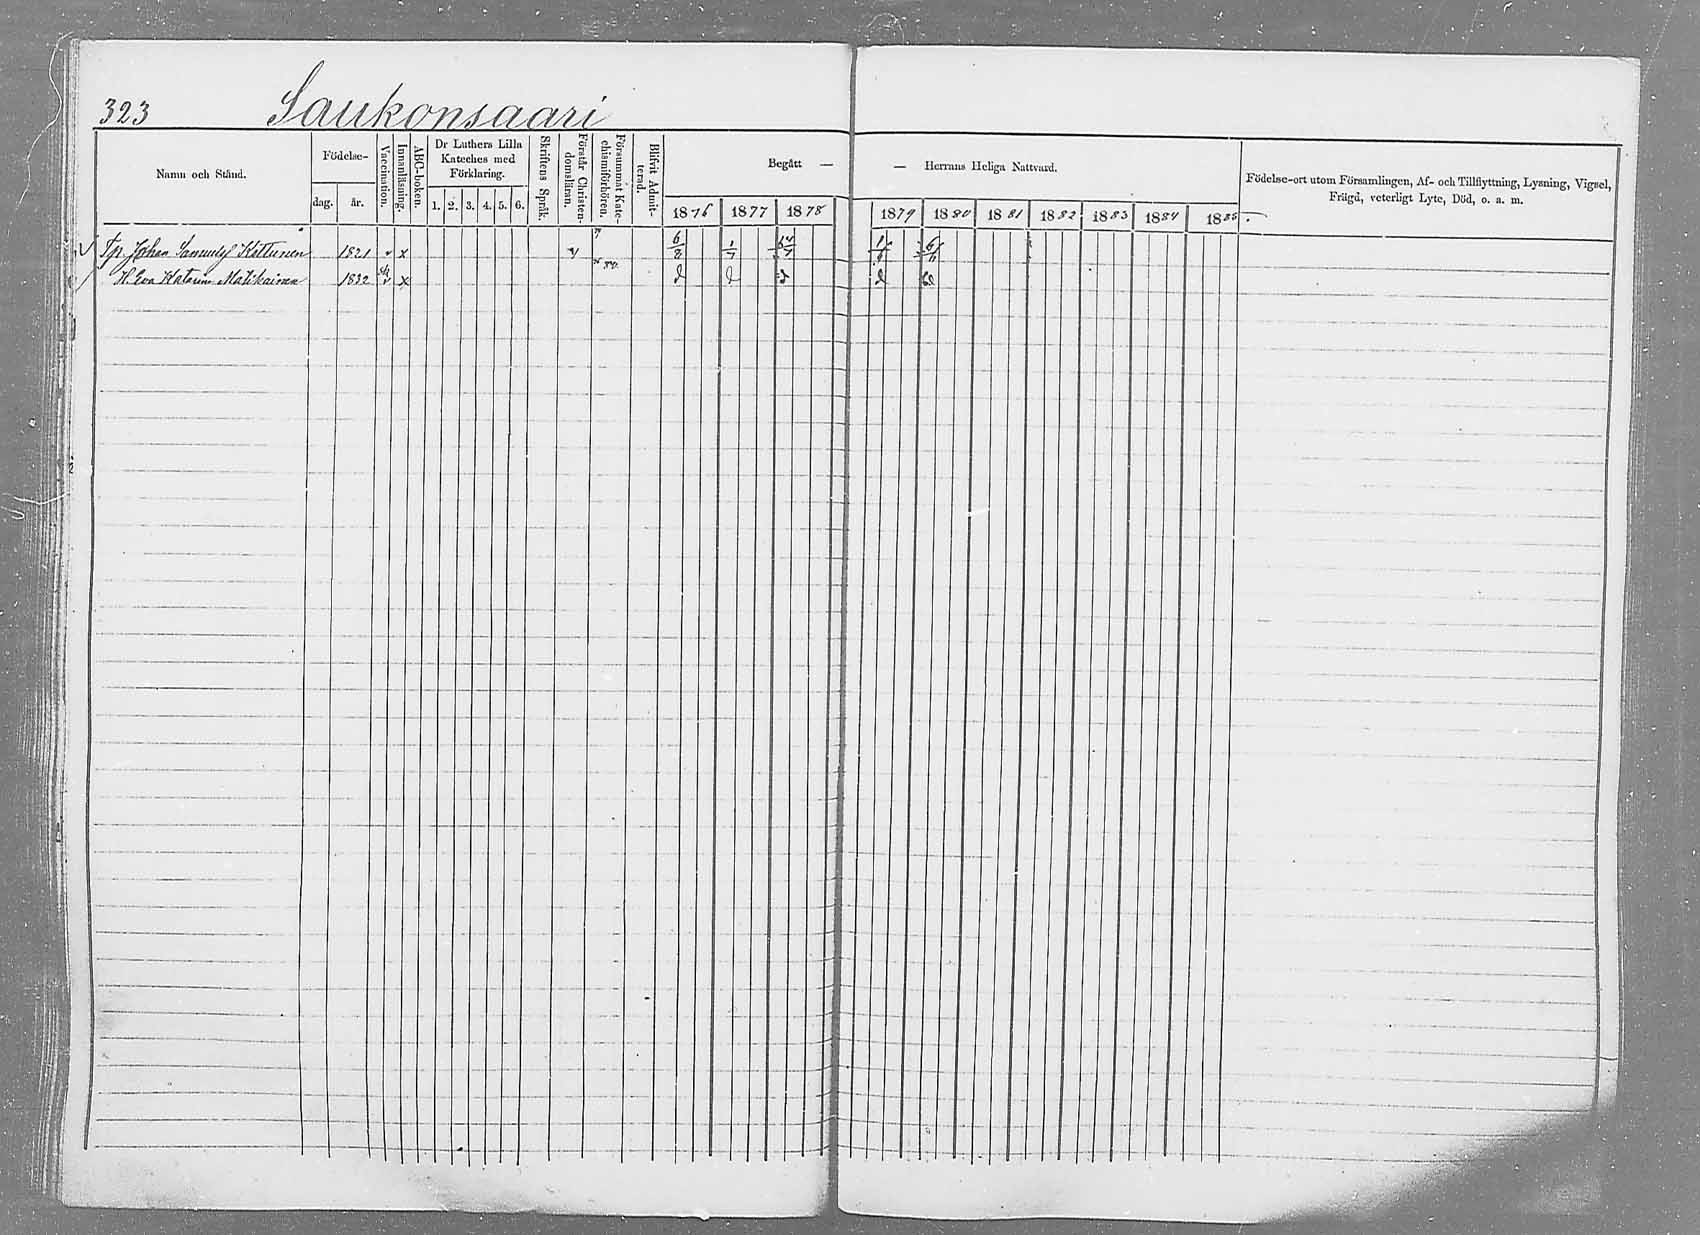 323 Saukonsaari
Namn och Stånd.
Födelse-
dag. år.
Vaccination.
Innanläsning.
ABC-boken.
Dr Luthers Lilla
Kateches med
Förklaring.
1. 2. 3. 4. 5. 6.
Skriftens Språk.
Förstår Christen-
domsläran.
Försummat Kate-
chismiförhören.
Blifvit Admit-
terad.
Begått —
— Herrans Heliga Nattvard.
1876 1877 1878 1879 1880 1881 1882 1883 1884 1885
Födelse-ort utom Församlingen, Af- och Tillflyttning, Lysning, Vigsel,
Frägd, veterligt Lyte, Död, o. a. m.
Johan Kettunen 1821 v x 6/8 1/7
H. Eva Katarina Matikainen 1832 v x d d d d